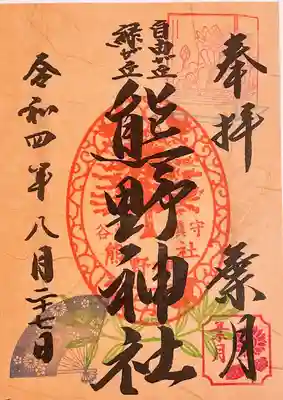 奉拝
葉月
自由が丘
緑が丘
熊野神社
令和四年八月二十七日
葉月